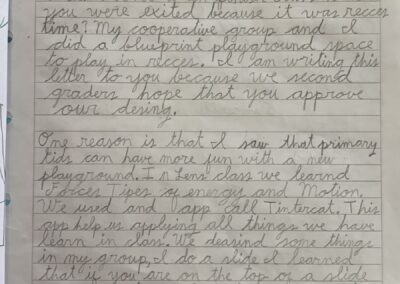 you were exited because it was recces
time? My cooperative group and I
did a blueprint playground space
to play in recces. I am writing this
letter to you because we second
graders hope that you approve
our desing.
One reason is that I saw that primary
kids can have more fun with a new
playground. In Lens class we learnd
Forces Tipes of energy and Motion.
We used and app call Tintercat. This
app help us applying all things we have
learn in class. We deasind some things
in my group, I do a slide I learned
that if you are on the top of a slide